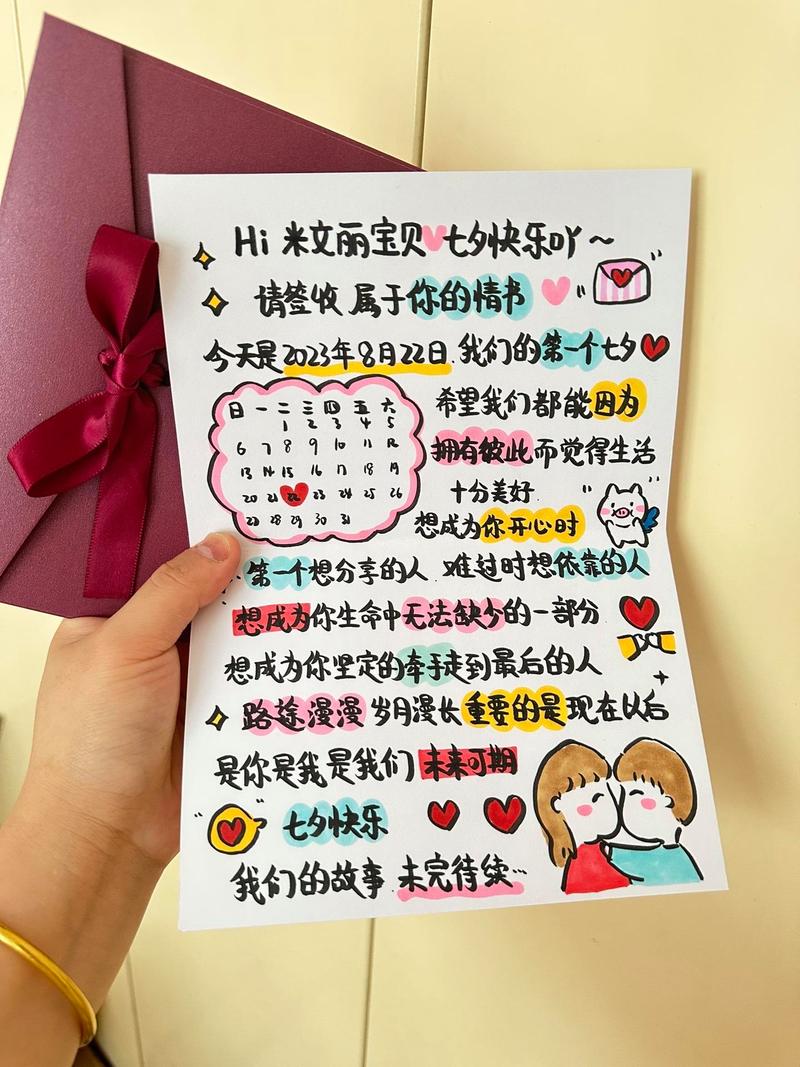 Hi 米文丽宝贝 七夕快乐吖～
请签收 属于你的情书
今天是2023年8月22日.我们的第一个七夕
日 一 二 三 四 五 六
1 2 3 4 5
6 7 8 9 10 11 12
13 14 15 16 17 18 19
20 21 22 23 24 25 26
27 28 29 30 31
希望我们都能因为
拥有彼此而觉得生活
十分美好.
想成为你开心时
第一个想分享的人.难过时想依靠的人
想成为你生命中无法缺少的一部分
想成为你坚定的牵手走到最后的人
路途漫漫 岁月漫长 重要的是现在以后
是你是我是我们 未来可期
七夕快乐
我们的故事 未完待续…